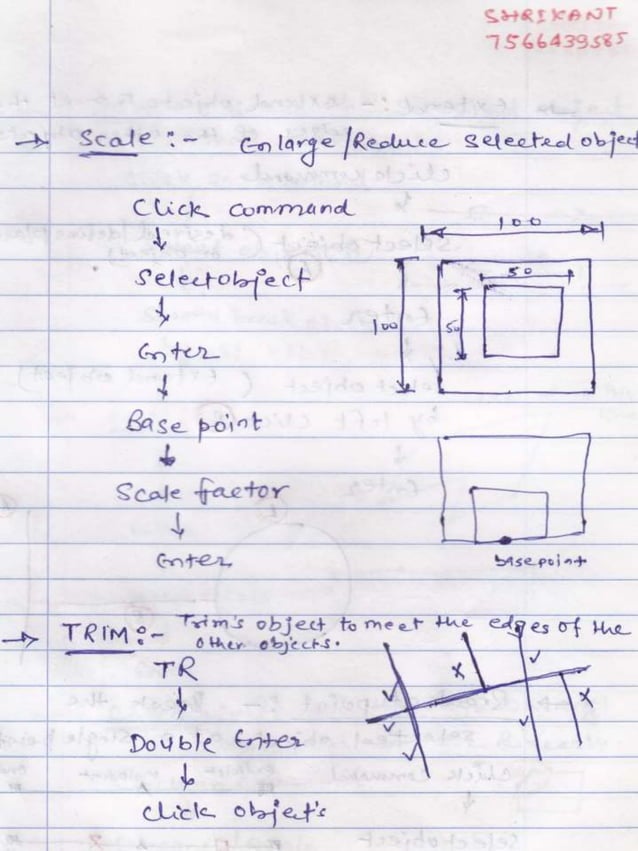 SHRIKANT
7566439585
→ Scale :- Enlarge/Reduce selected object
Click command
↓
Select object
↓
Enter
↓
Base point
↓
Scale factor
↓
Enter
100
50
100
50
basepoint
→ TRIM :- Trim's object to meet the edges of the
other objects.
TR
↓
Double Enter
↓
click object's